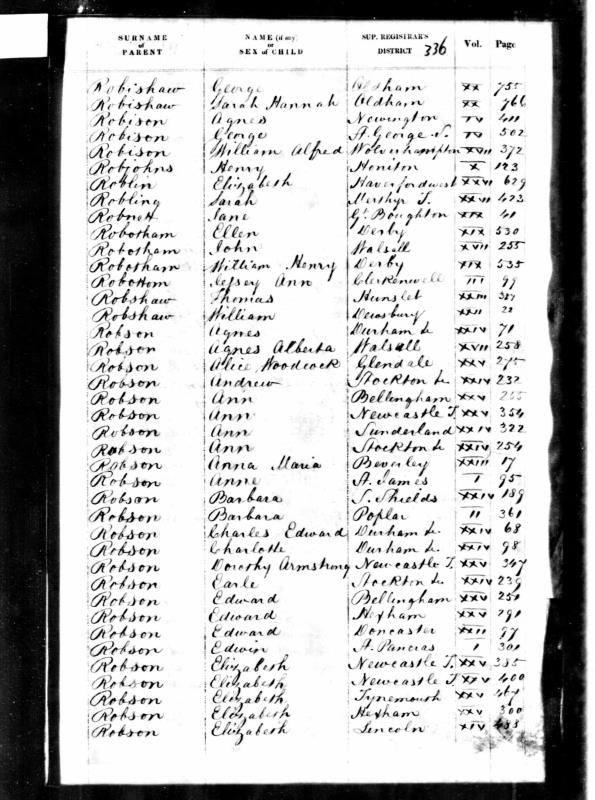 SURNAME of PARENT NAME (if any) or SEX of CHILD SUP. REGISTRAR'S DISTRICT 336 Vol. Page
Robishaw George Oldham XX 755
Robishaw Sarah Hannah Oldham XX 766
Robison Agnes Newington IV 411
Robison George St. George S. IV 502
Robison William Alfred Wolverhampton XVII 372
Robjohns Henry Honiton X 123
Roblin Elizabeth Haverfordwest XXVI 629
Robling Sarah Merthyr T. XXVI 423
Robnett Jane Gt. Boughton XIX 41
Robotham Ellen Derby XIX 530
Robotham John Walsall XVII 255
Robotham William Henry Derby XIX 535
Robottom Jessey Ann Clerkenwell III 99
Robshaw Thomas Hunslet XXIII
Robshaw William Dewsbury XXII 22
Robson Agnes Durham &c XXIV 71
Robson Agnes Alberta Walsall XVII 258
Robson Alice Woodcock Glendale XXV 275
Robson Andrew Stockton &c XXIV 232
Robson Ann Bellingham XXV 255
Robson Ann Newcastle T. XXV 354
Robson Ann Sunderland XXIV 322
Robson Ann Stockton &c XXIV 254
Robson Anna Maria Beverley XXIII 17
Robson Anne St. James I 95
Robson Barbara S. Shields XXIV 189
Robson Barbara Poplar II 361
Robson Charles Edward Durham &c XXIV 68
Robson Charlotte Durham &c XXIV 98
Robson Dorothy Armstrong Newcastle T. XXV 347
Robson Earle Stockton &c XXIV 239
Robson Edward Bellingham XXV 251
Robson Edward Hexham XXV 291
Robson Edward Doncaster XXII 97
Robson Edwin St. Pancras I 301
Robson Elizabeth Newcastle T. XXV 385
Robson Elizabeth Newcastle T. XXV 400
Robson Elizabeth Tynemouth XXV 467
Robson Elizabeth Hexham XXV 300
Robson Elizabeth Lincoln XIV 433